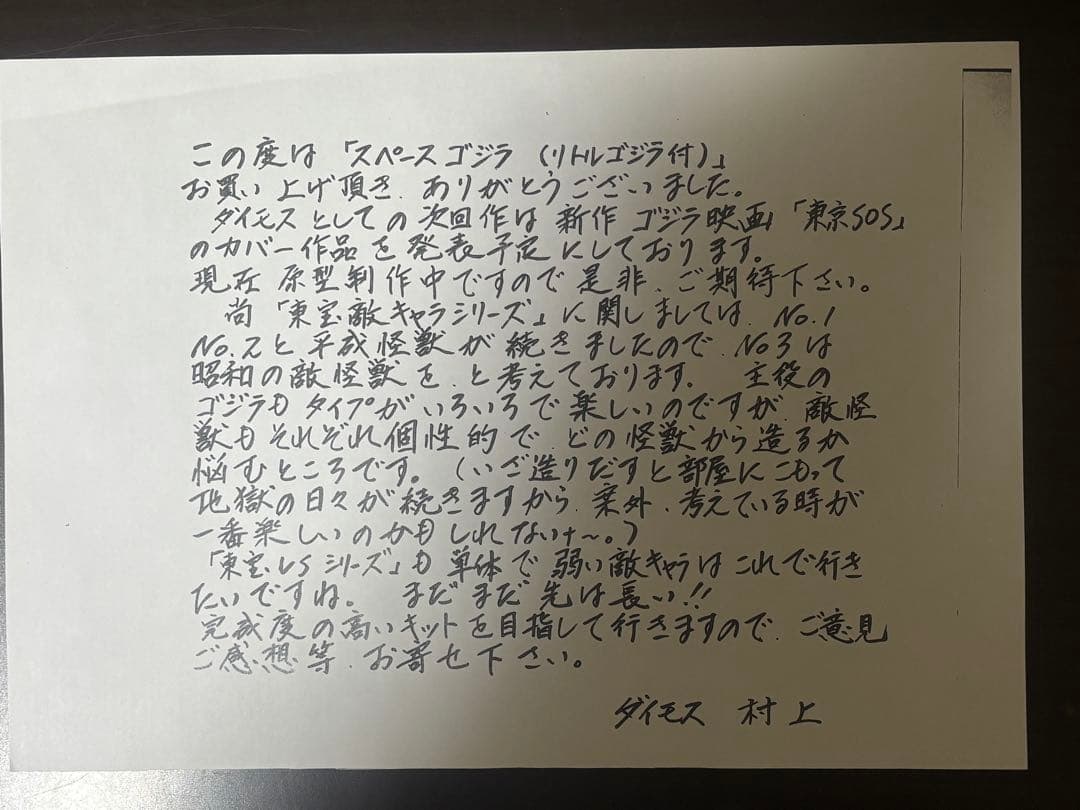 この度は「スペースゴジラ(リトルゴジラ付)」
お買い上げ頂き、ありがとうございました。
ダイモスとしての次回作は新作ゴジラ映画「東京SOS」
のカバー作品を発表予定にしております。
現在原型制作中ですので是非、ご期待下さい。
尚「東宝敵キャラシリーズ」に関しましては、No.1
No.2と平成怪獣が続きましたので、No3は
昭和の敵怪獣を、と考えております。 主役の
ゴジラもタイプがいろいろで楽しいのですが、敵怪
獣もそれぞれ個性的で、どの怪獣から造るか
悩むところです。(いざ造りだすと部屋にこもって
地獄の日々が続きますから、案外、考えている時が
一番楽しいのかもしれないナ~。)
「東宝VSシリーズ」も単体で弱い敵キャラはこれで行き
たいですね。 まだまだ先は長い!!
完成度の高いキットを目指して行きますので、ご意見
ご感想等、お寄せ下さい。
ダイモス 村上